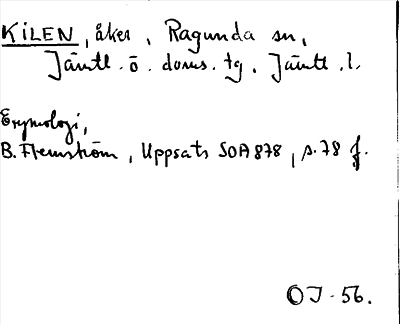 KILEN, åker, Ragunda sn,
Jämtl. ö. doms. tg. Jämtl. l.
Etymologi,
B. Flemström, Uppsats SOA 878, s. 78 f.
OJ-56.